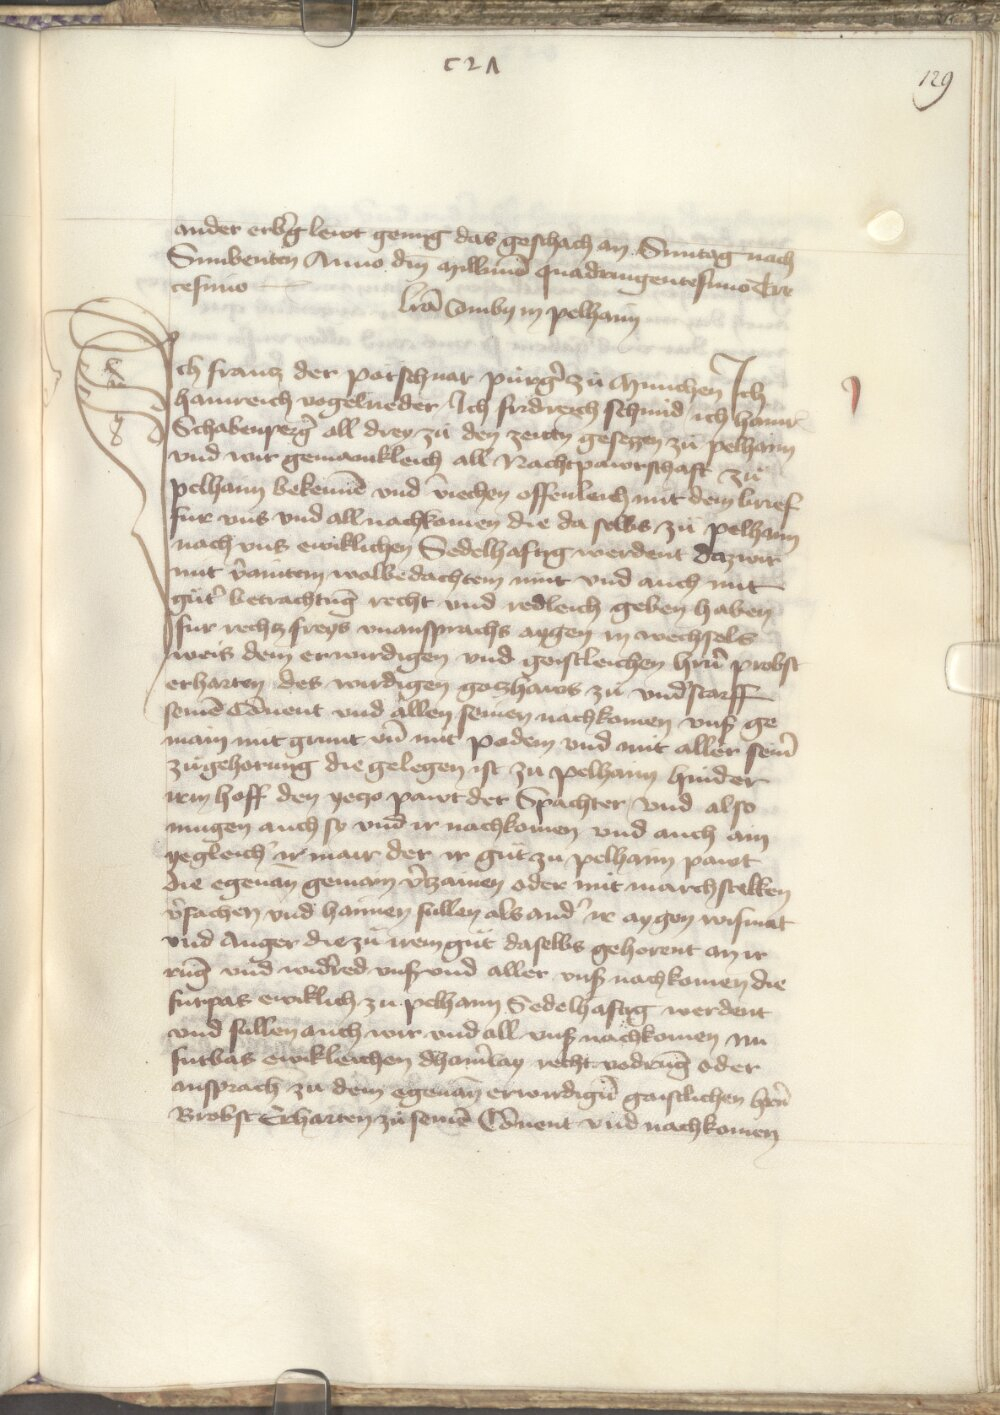 c 2 ʌ
129
ander erbg̃ lewt genug das geschach an Suntag nach
Sunbenten Anno dm̄ Millimo quadringentesimo Tre
cesimo
lrã Comby in pelhaim
Ich frantz der potschner purg̃ zu Munichen Ich
hainreich vogelrieder Ich fridreich schmid ich hainr̄
Schabenperg̃ all drey zu den zeiten gesezzen zu pelhaim
vnd wir gemainkleich all Nachtpawrschaft zu
pelhaim bekenne̅ vnd v̄iechen offenleich mit dem brief
fur vns vnd all nachkomen die da selbs zu pelhaim
nach vns ewiklichen Sedelhaftig werdent daz wir
mit v̄aintem wolbedachtem mut vnd auch mit
gut᷑ betrachtūg recht vnd redleich geben haben
fur rechtz freys vnansprachs aygen in wechsels
weis dem erwirdigen vnd geistleichen hr̄n probst
erharten des wirdigen gotzhaws zu vnd᷑starff
seinē Cōuent vnd allen seinen nachkomen vnß ge
main mit grunt vn̄ mit podem vnd mit aller sein᷑
zugehorung die gelegen ist zu pelhaim hinder
irm hoff den yeczo pawt der Spachter vnd also
mugen auch sy vnd ir nachkomen vnd auch ain
yegleich᷑ ir mair der ir gut zu pelhaim pawt
die egenan̄ gemain v̄zainen oder mit marchstekken
v̄fachen vnd hainen sullen als and᷑ ir aygen wismat
vnd Anger die zu irem gut daselbs gehorent an ir
rūg vnd wid᷑red vnß vnd aller vnß nachkomen die
furpas ewiklich zu pelhaim Sedelhaftig werdent
vnd sullen auch wir vnd all vnß nachkomen nu
furbas ewikleichen dhain᷑lay recht vodrūg oder
ansprach zu dem egenan̄ erwirdigū gaistlichen hrn̄
Brobst Erharten zu seinē Cōuent vnd nachkomen